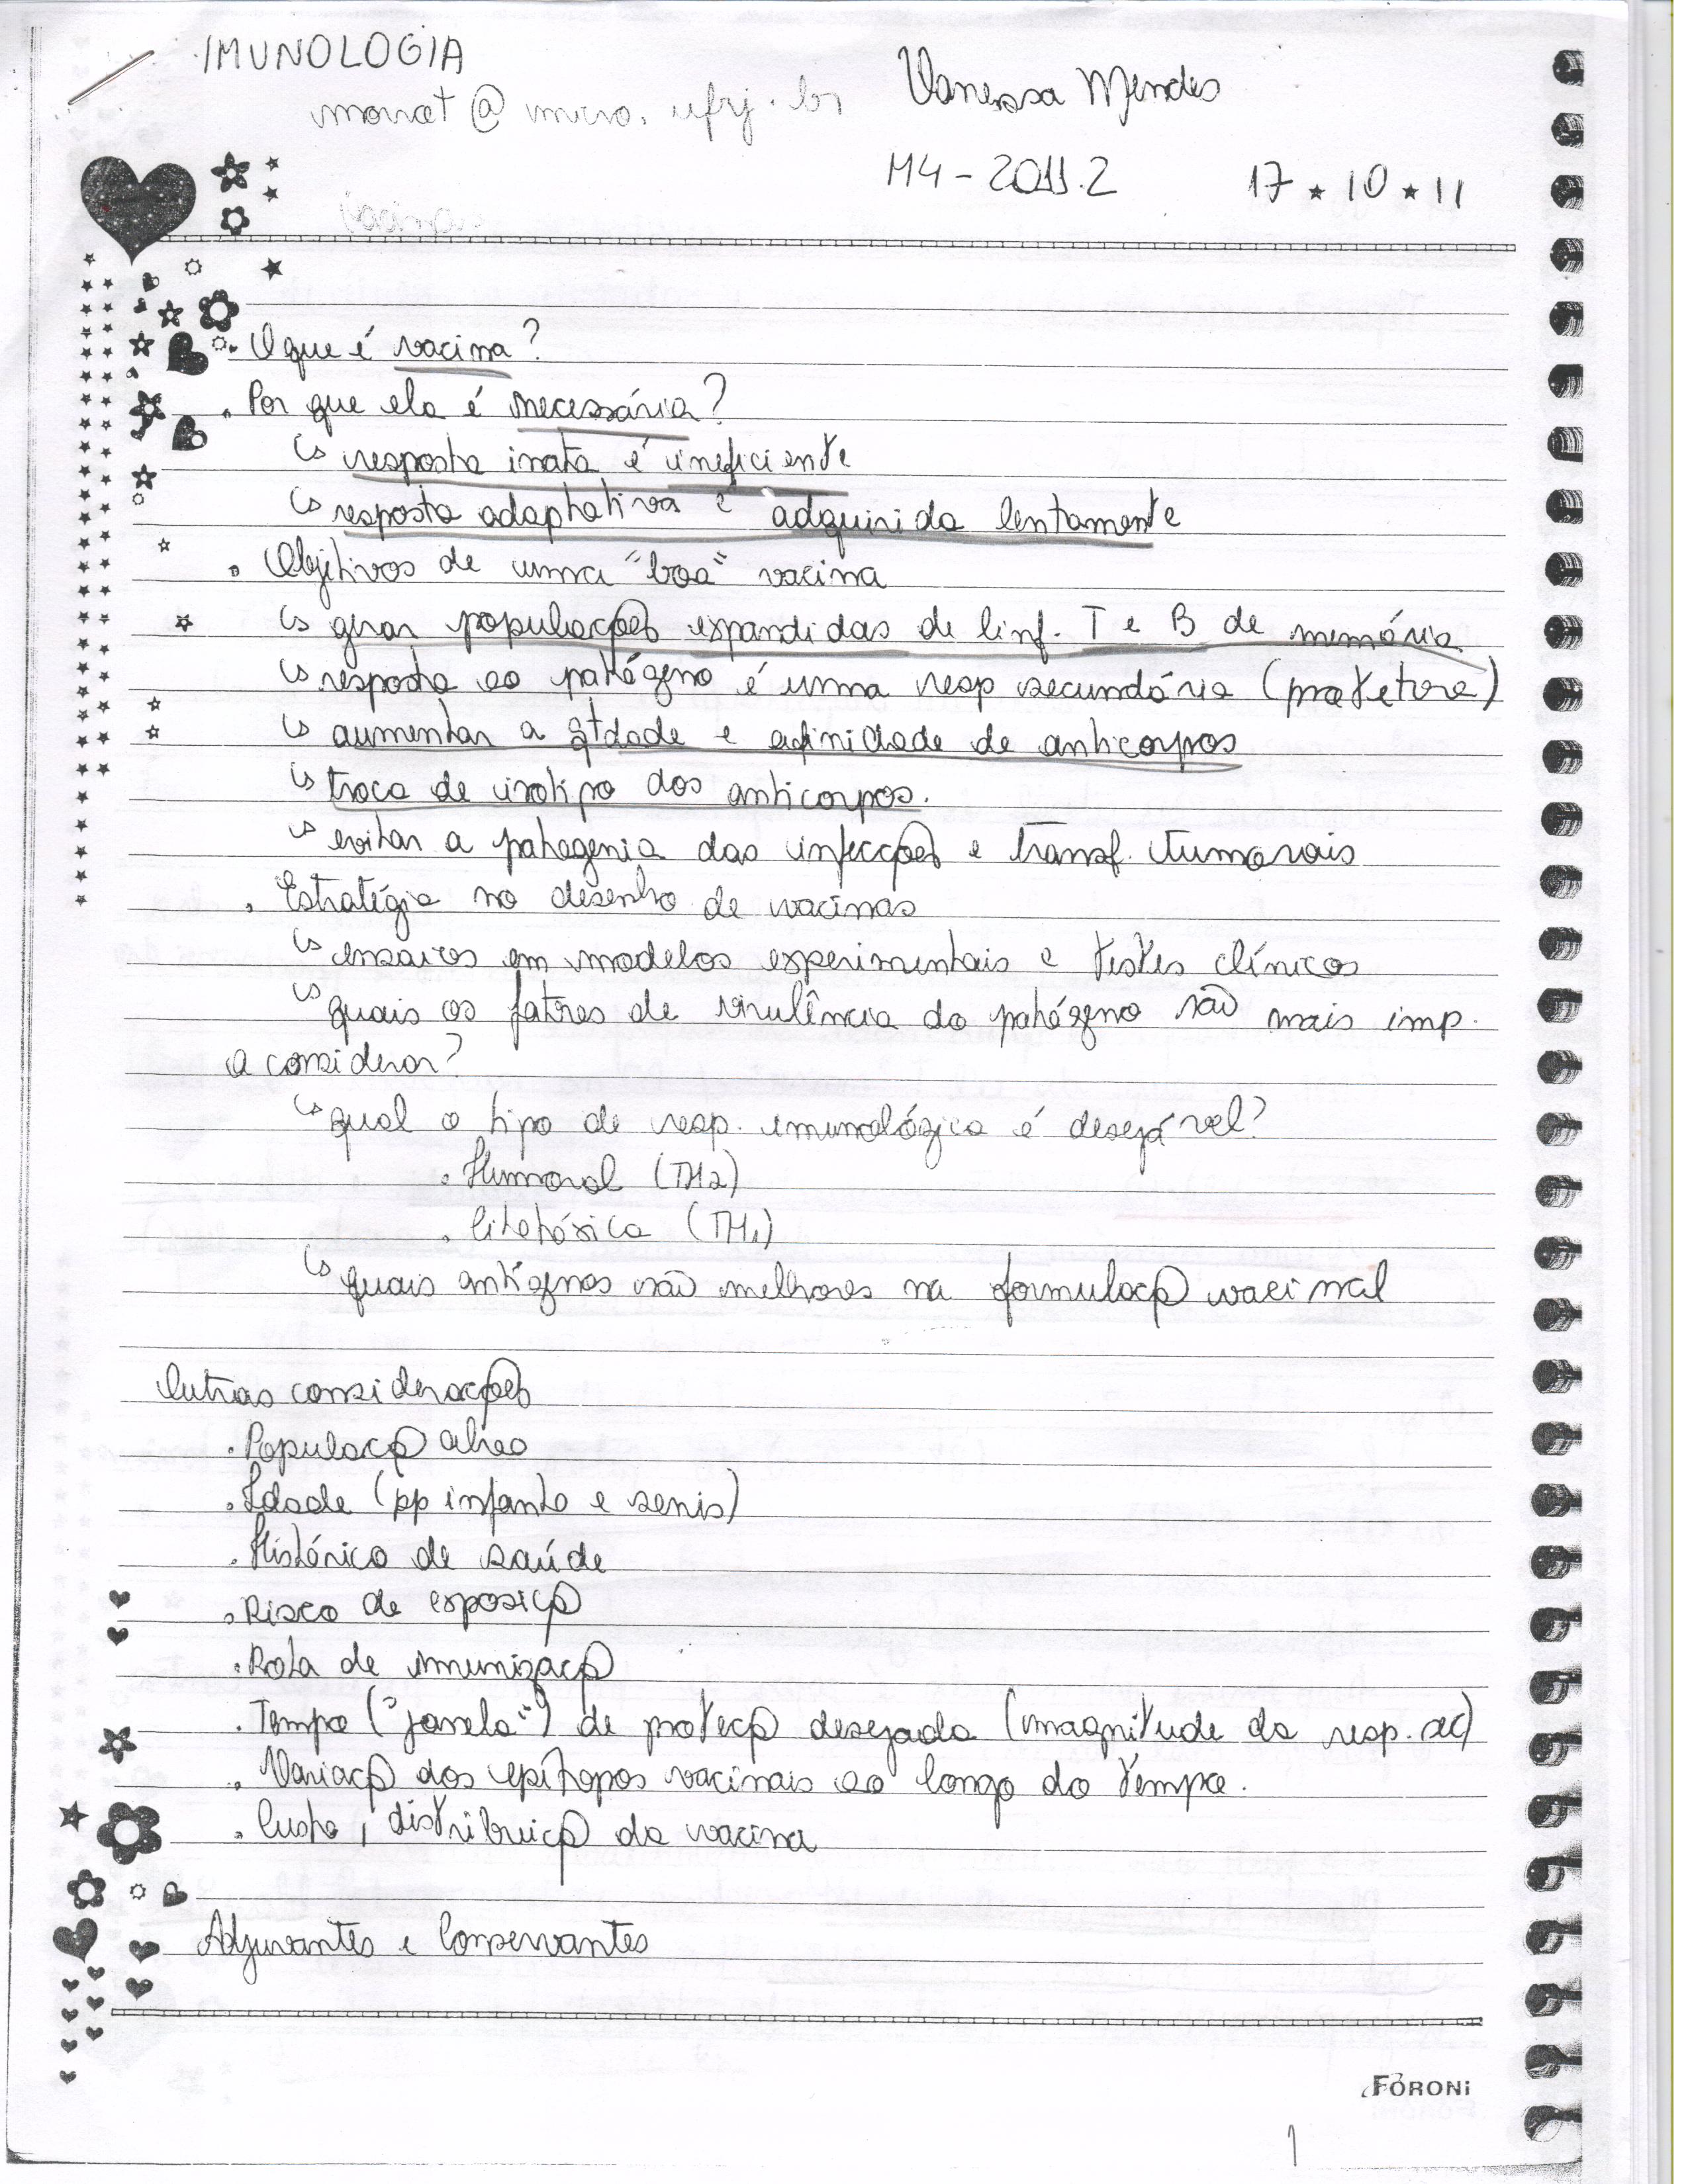 IMUNOLOGIA
@micro.ufrj.br
Vanessa Mendes
M4 - 2011.2 17 ★ 10 ★ 11
Vacinas
. O que é vacina?
. Por que ela é necessária?
↳ resposta inata é ineficiente
↳ resposta adaptativa é adquirida lentamente
. Objetivos de uma "boa" vacina
↳ gerar populações expandidas de linf. T e B de memória
↳ resposta ao patógeno é uma resp secundária (protetora)
↳ aumentar a qtdade e afinidade de anticorpos
↳ troca de isotipo dos anticorpos.
↳ evitar a patogenia das infecções e transf. tumorais
. Estratégia no desenho de vacinas
↳ ensaios em modelos experimentais e testes clínicos
↳ quais os fatores de virulência do patógeno são mais imp.
a considerar?
↳ qual o tipo de resp. imunológica é desejável?
. Humoral (TH2)
. Citotóxica (TH1)
↳ quais antígenos são melhores na formulaçã vacinal
Outras considerações
. Populaçã alvo
. Idade (pp infanto e senis)
. Histórico de saúde
. Risco de exposiçã
. Rota de imunizaçã
. Tempo ("janela") de proteçã desejada (magnitude da resp. sec)
. Variaçã dos epítopos vacinais ao longo do tempo.
. Custo, distribuiçã da vacina
Adjuvantes e Conservantes
FORONI
1